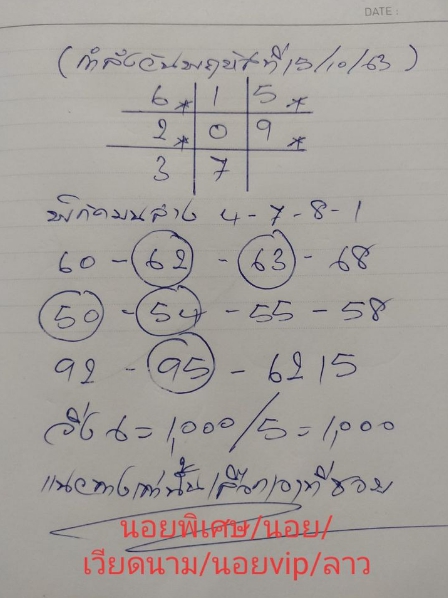 DATE :
(กำลังวันพฤหัสที่ 15/10/63)
6* 1 5*
2* 0 9*
3 7
พิกัดบนล่าง 4-7-8-1
60 - 62 - 63 - 68
50 - 54 - 55 - 58
92 - 95 - 6215
วิ่ง 6 = 1,000/5 = 1,000
แนวทางเท่านั้น เลือกเอาที่ชอบ
นอยพิเศษ/นอย/
เวียดนาม/นอยvip/ลาว